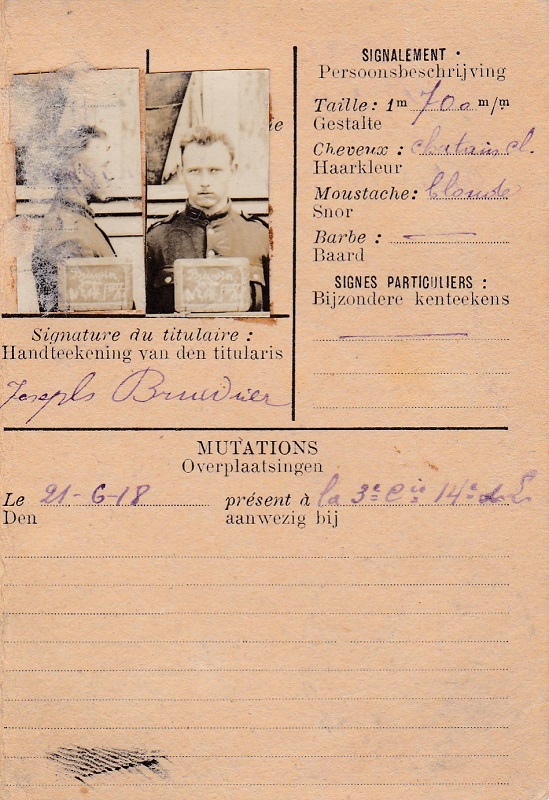 ie
SIGNALEMENT
Persoonsbeschrijving
Taille: 1m 700 m/m
Gestalte
Cheveux : chatain cl.
Haarkleur
Moustache: blonde
Snor
Barbe :
Baard
SIGNES PARTICULIERS :
Bijzondere kenteekens
Signature du titulaire :
Handteekening van den titularis
MUTATIONS
Overplaatsingen
Le 21-6-18 présent à la 3e Cie 14e
Den aanwezig bij